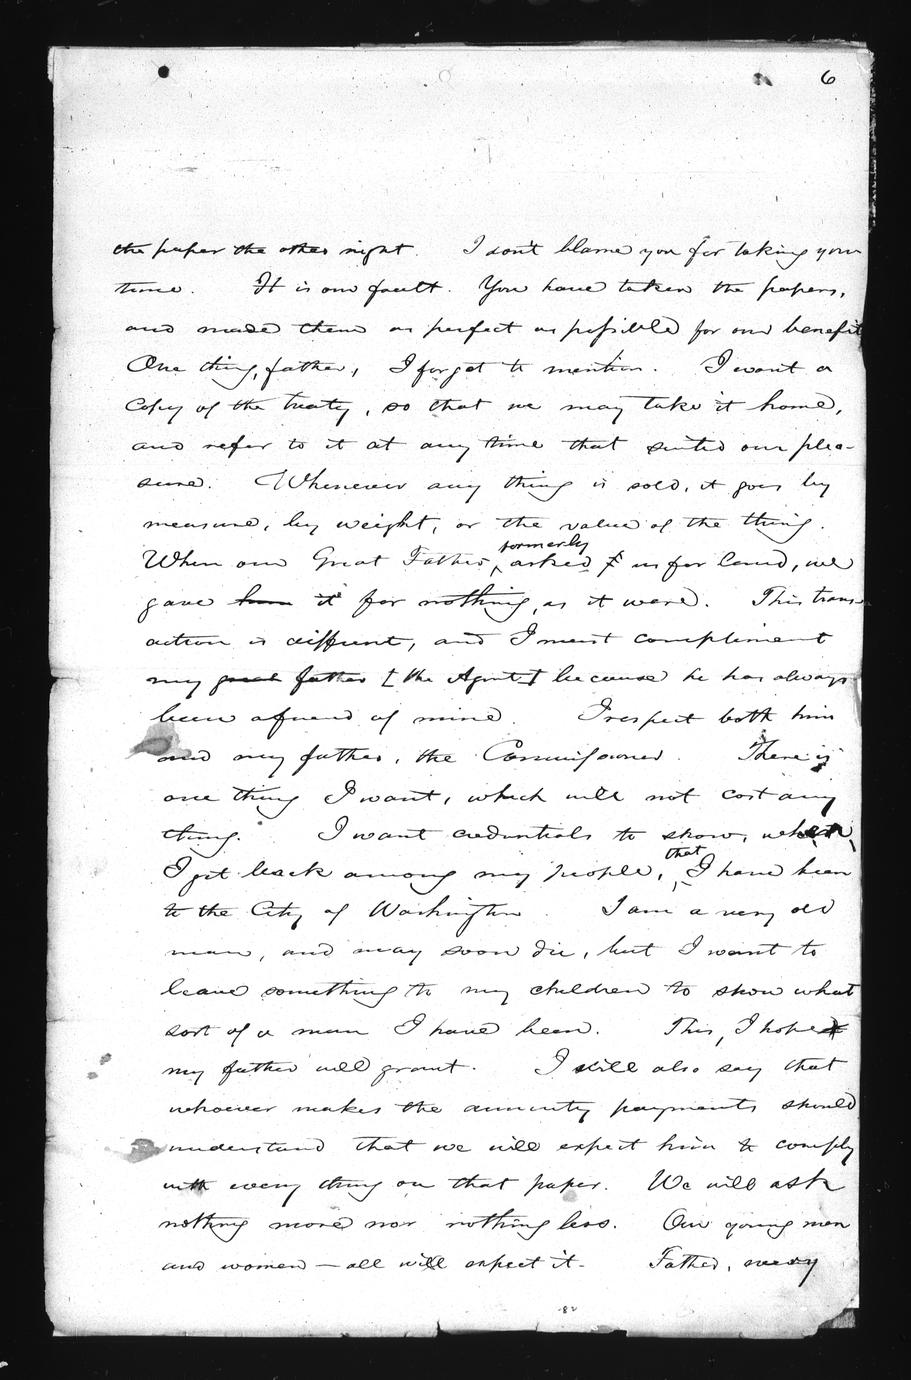 6
the paper the other night. I don't blame you for taking your
time. It is our fault. You have taken the papers,
and made them as perfect as possible for our benefit
One thing, father, I forgot to mention. I want a
copy of the treaty, so that we may take it home,
and refer to it at any time that suited our plea-
sure. Whenever any thing is sold, it goes by
measure, by weight, or the value of the thing.
When our Great Father, formerly asked us for land, we
gave him it for nothing, as it were. This trans-
action is diffrent, and I must compliment
my great father [the Agent] because he has always
been a friend of mine. I respect both him
and my father, the Commissioner. There is
one thing I want, which will not cost any
thing. I want credentials to show, when,
I get back among my people, that I have been
to the City of Washington. I am a very old
man, and may soon die, but I want to
leave something to my children to show what
sort of a man I have been. This, I hope
my father will grant. I will also say that
whoever makes the annuity payments should
understand that we will expect him to comply
with every thing on that paper. We will ask
nothing more nor nothing less. Our young men
and women — all will expect it. Father, every
82